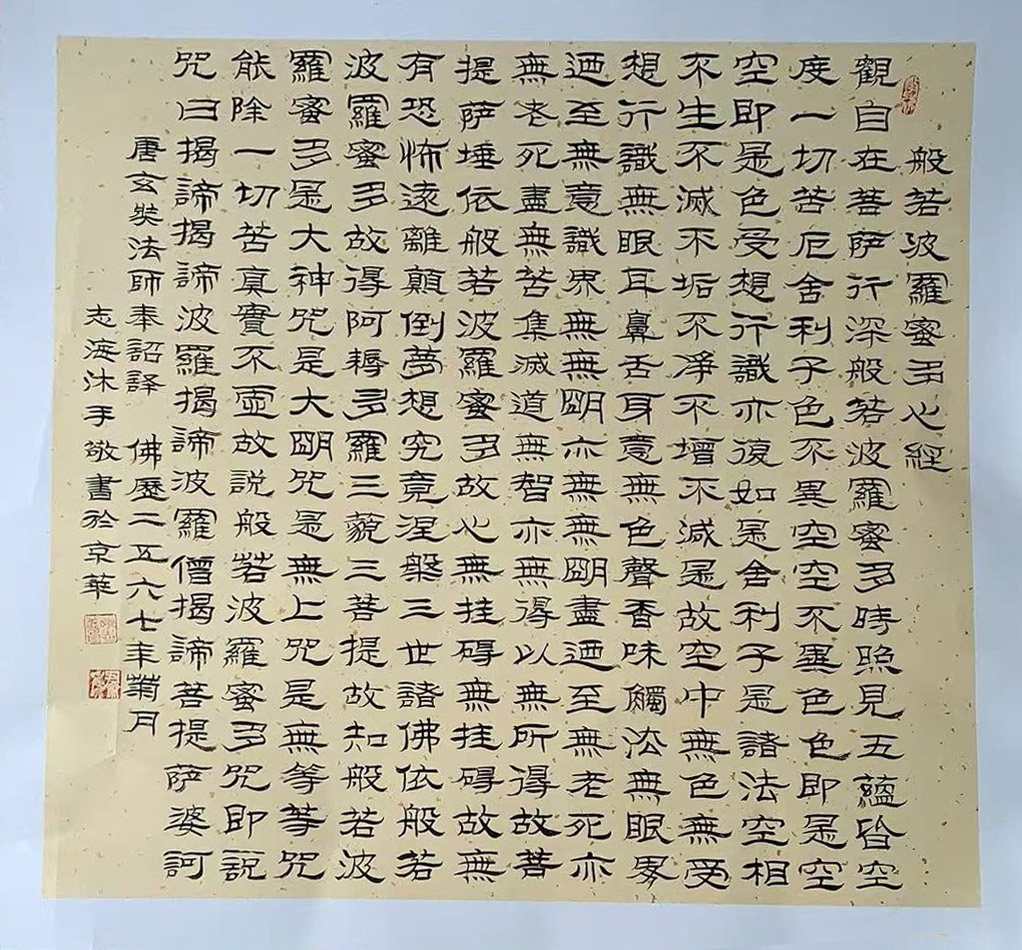 般若波羅蜜多心經
觀自在菩薩行深般若波羅蜜多時照見五蘊皆空
度一切苦厄舍利子色不異空空不異色色即是空
空即是色受想行識亦復如是舍利子是諸法空相
不生不滅不垢不淨不增不減是故空中無色無受
想行識無眼耳鼻舌身意無色聲香味觸法無眼界
迺至無意識界無無明亦無無明盡迺至無老死亦
無老死盡無苦集滅道無智亦無得以無所得故菩
提薩埵依般若波羅蜜多故心無挂碍無挂碍故無
有恐怖遠離顛倒夢想究竟涅槃三世諸佛依般若
波羅蜜多故得阿耨多羅三藐三菩提故知般若波
羅蜜多是大神咒是大明咒是無上咒是無等等咒
能除一切苦真實不虛故說般若波羅蜜多咒即說
咒曰揭諦揭諦波羅揭諦波羅僧揭諦菩提薩婆訶
唐玄奘法師奉詔譯 佛歷二五六七年菊月
志海沐手敬書於京華